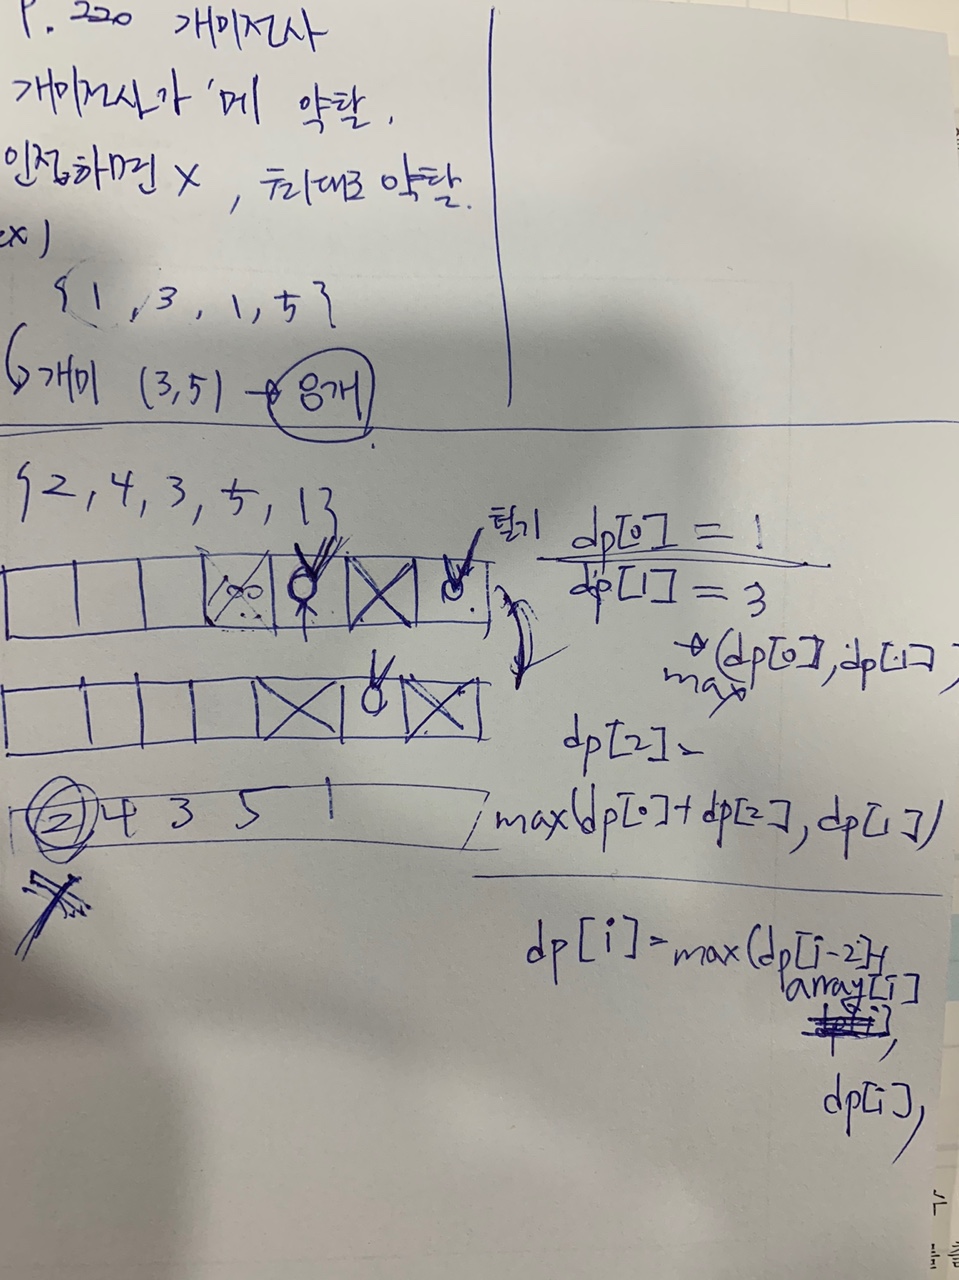 P. 220 개미전사
개미전사가 메뚜기 약탈.
인접하면 X, 최대로 약탈.
ex)
{1, 3, 1, 5}
개미 (3,5) → 8개
{2, 4, 3, 5, 1}
털기
2 4 3 5 1
dp[0] = 1
dp[1] = 3
→ max(dp[0], dp[1])
dp[2] =
max(dp[0] + dp[2], dp[1])
dp[i] = max(dp[i-2]+
array[i]
,
dp[i],